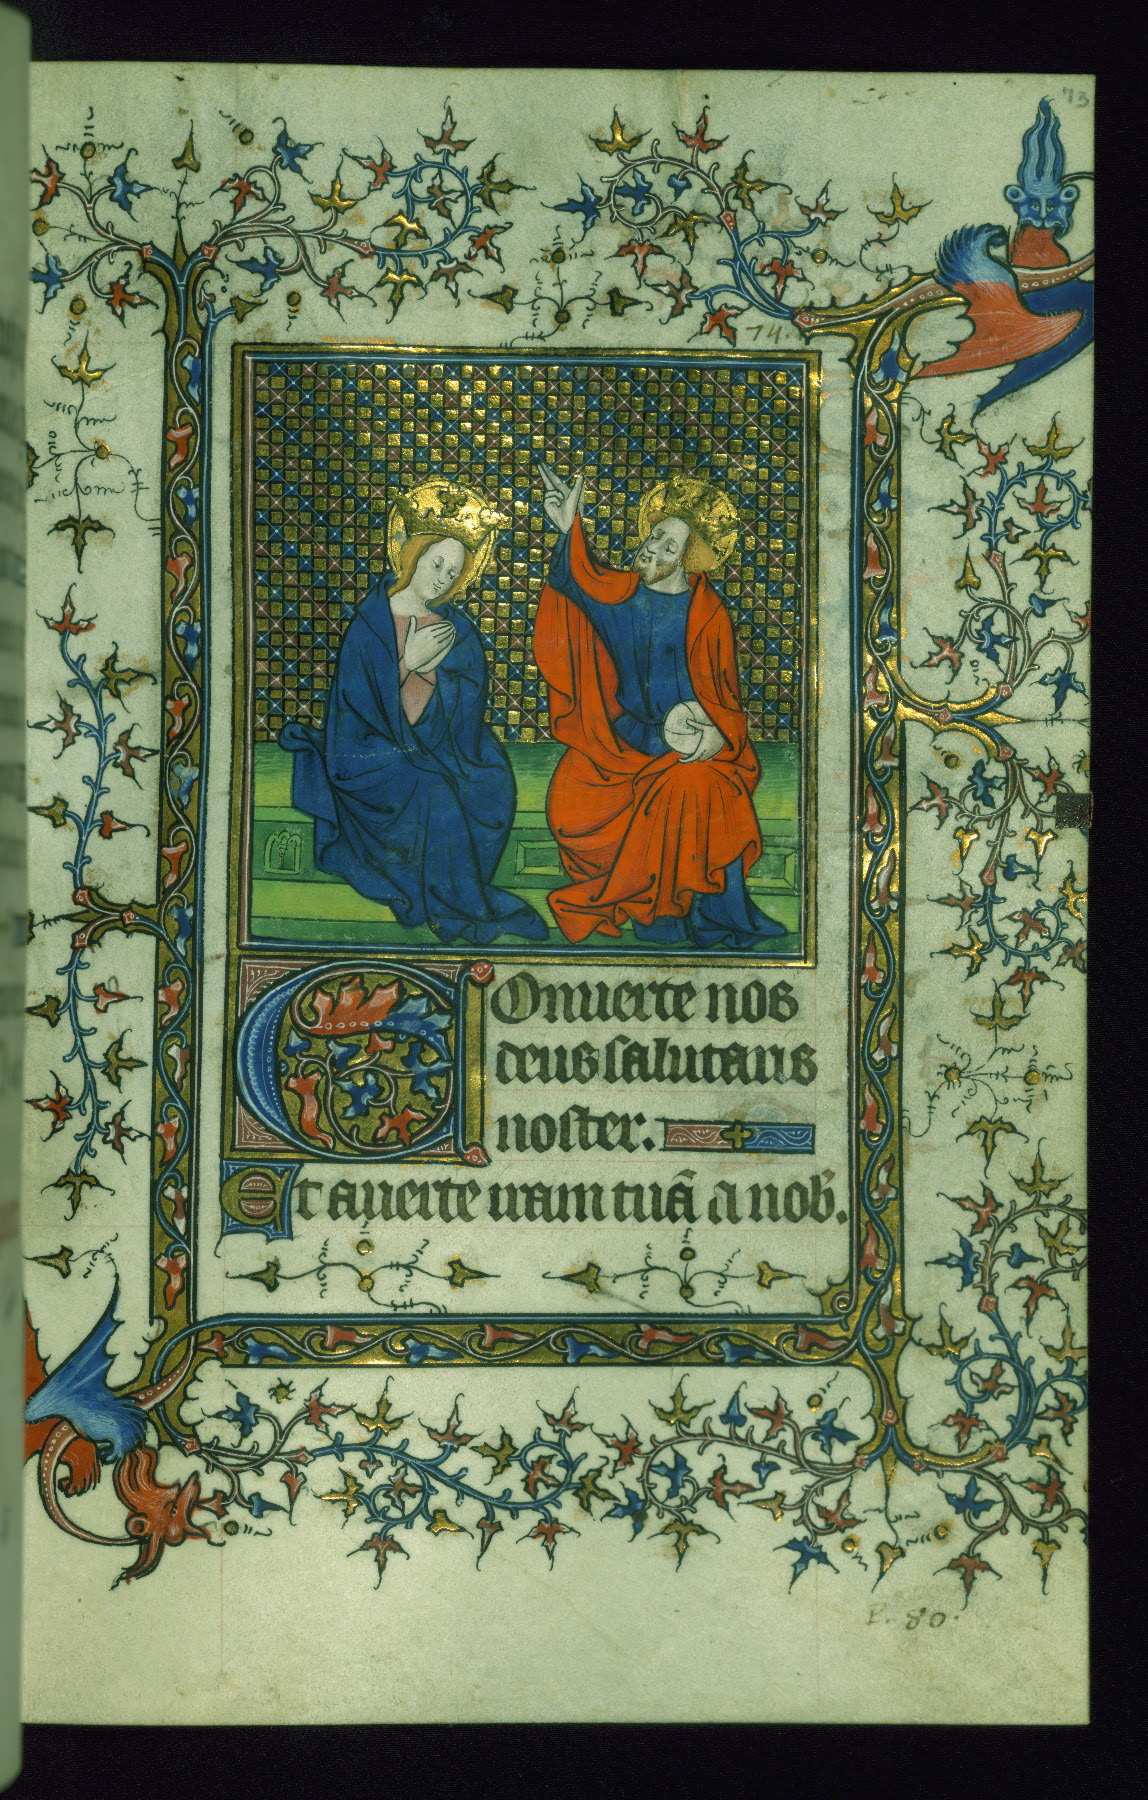 73
74.
Conuerte nos
deus salutaris
noster.
Et auerte iram tuā a nob̄.
P. 80.